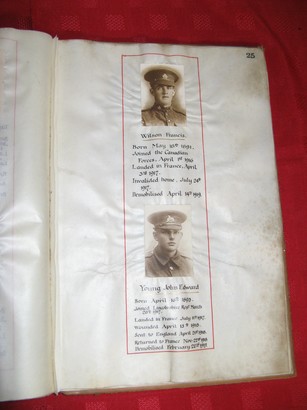 25
Wilson Francis.
Born May 10th 1891.
Joined the Canadian
Forces, April 1st 1916
Landed in France, April
1917.
Invalided home, July 24th
1917.
Demobilised April 14th 1919.
Young John Edward
Born April 16th
Joined Lincolnshire Regt March
1917.
Landed in France July 1917
Wounded April 1918.
Sent to England April 1918.
Returned to France Nov 1918
Demobilised February 1919